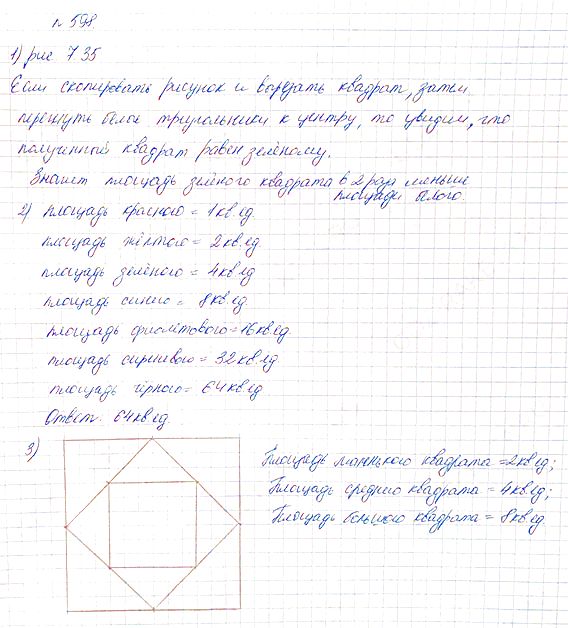 № 598.
1) рис 7 35
Если скопировать рисунок и вырезать квадрат, затем
перегнуть белые треугольники к центру, то увидим, что
полученный квадрат равен зелёному.
Значит площадь зелёного квадрата в 2 раза меньше
площади белого.
2) площадь красного = 1 кв.ед.
площадь жёлтого = 2 кв.ед.
площадь зелёного = 4 кв.ед
площадь синего = 8 кв.ед.
площадь фиолетового = 16 кв.ед.
площадь сиреневого = 32 кв.ед
площадь чёрного = 64 кв.ед
Ответ: 64 кв.ед.
3)
Площадь маленького квадрата = 2 кв.ед;
Площадь среднего квадрата = 4 кв.ед;
Площадь большого квадрата = 8 кв.ед.